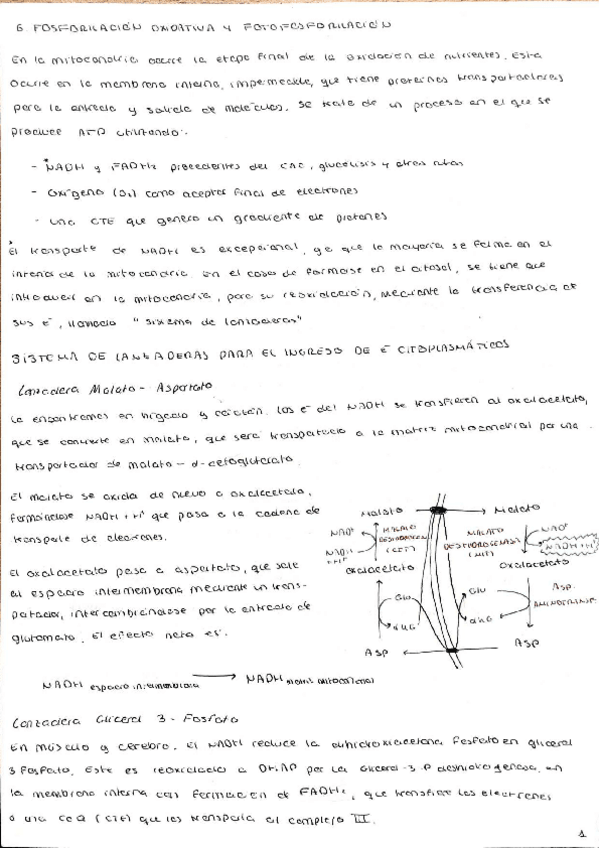 6. FOSFORILACIÓN OXIDATIVA Y FOTOFOSFORILACIÓN
En la mitocondria ocurre la etapa final de la oxidación de nutrientes. Esta
ocurre en la membrana interna, impermeable, que tiene proteínas transportadoras
para la entrada y salida de moléculas. Se trata de un proceso en el que se
produce ATP utilizando:
- NADH y FADH2 procedentes del CAC, glucólisis y otras rutas
- Oxígeno (O2) como aceptor final de electrones
- una CTE que genera un gradiente de protones
El transporte de NADH es excepcional, ya que la mayoría se forma en el
interior de la mitocondria. En el caso de formarse en el citosol, se tiene que
introducir en la mitocondria, para su reoxidación, mediante la transferencia de
sus e-, llamado "sistema de lanzaderas"
SISTEMA DE LANZADERAS PARA EL INGRESO DE e- CITOPLASMÁTICOS
Lanzadera Malato - Aspartato
La encontramos en hígado y corazón. Los e- del NADH se transfieren al oxalacetato,
que se convierte en malato, que será transportado a la matriz mitocondrial por un
transportador de malato - α-cetoglutarato.
El malato se oxida de nuevo a oxalacetato,
formándose NADH + H+ que pasa a la cadena de
transporte de electrones.
El oxalacetato pasa a aspartato, que sale
al espacio intermembrana mediante un trans-
portador, intercambiándose por la entrada de
glutamato. El efecto neto es:
Malato
Malato
NAD+
MALATO
DESHIDROGENASA
(CIT)
NADH
+H+
MALATO
DESHIDROGENASA
(MIT)
NAD+
NADH+H+
Oxalacetato
Oxalacetato
Glu
αKG
Glu
αKG
Asp
AMINOTRANSF.
Asp
Asp
NADH espacio intermembrana → NADH matriz mitocondrial
Lanzadera Glicerol 3 - Fosfato
En músculo y cerebro. El NADH reduce la dihidroxiacetona fosfato en glicerol
3 fosfato. Este es reoxidado a DHAP por la Glicerol-3-P deshidrogenasa, en
la membrana interna con formación de FADH2, que transfiere los electrones
a una CoQ (CTE) que los transporta al complejo III.
1